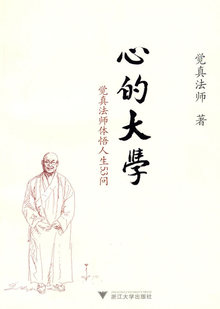 觉真法师 著
心的大學
觉真法师体悟人生53问
浙江大学出版社